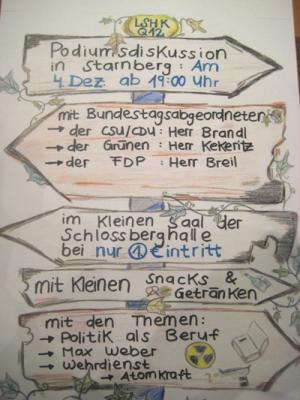 LSHK
Q12
Podiumsdiskussion
in Starnberg : Am
4. Dez. ab 19:00 Uhr
mit Bundestagsabgeordneten
→ der CSU/CDU : Herr Brandl
→ der Grünen : Herr Kekeritz
→ der FDP : Herr Breil
im Kleinen Saal der
Schlossberghalle
bei nur 1 € intritt
mit Kleinen Snacks &
Getränken
mit den Themen:
→ Politik als Beruf
→ Max Weber
→ Wehrdienst
→ Atomkraft